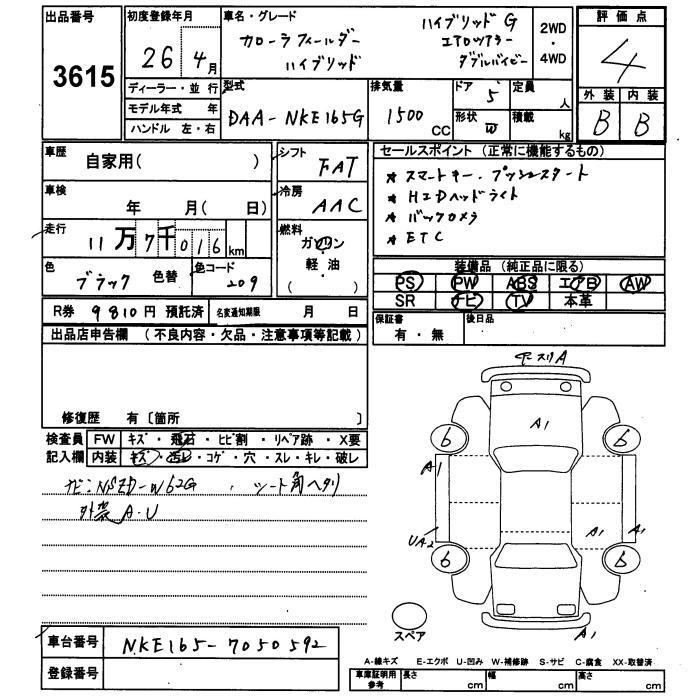 出品番号 初度登録年月 車名・グレード 評価点
3615 26年 4月 カローラフィールダー ハイブリッド G 2WD 4
ハイブリッド エアロツアラー ・
ダブルバイビー 4WD
ディーラー・並行 型式 排気量 ドア 5 定員 人 外装 内装
モデル年式 年 DAA-NKE165G 1500 CC 形状 W 積載 kg B B
ハンドル 左・右
車歴 自家用( ) シフト FAT セールスポイント (正常に機能するもの)
車検 年 月( 日) 冷房 AAC * スマートキー、プッシュスタート
* HIDヘッドライト
走行 11万7千016km 燃料 ガソリン * バックカメラ
軽・油 * ETC
( )
色 ブラック 色替 色コード 209 装備品 (純正品に限る)
PS PW ABS エアB AW
SR ナビ TV 本革
R券 9810円 預託済 名変通知期限 月 日 保証書 後日品
有・無
出品店申告欄 (不良内容・欠品・注意事項等記載)
修復歴 有〔箇所 〕
検査員 FW キズ・飛石・ヒビ割・リペア跡・X要
記入欄 内装 キズ・汚レ・コゲ・穴・スレ・キレ・破レ
ナビ:NSZD-W62G 、シート角ヘタリ
外装 A・U
モースリA
A1
6 6
A1
A1 A1
UA2
6 6
スペア
A1
車台番号 NKE165-7050592
登録番号
A-線キズ E-エクボ U-凹み W-補修跡 S-サビ C-腐食 XX-取替済
車庫証明用 長さ 幅 高さ
参考 cm cm cm